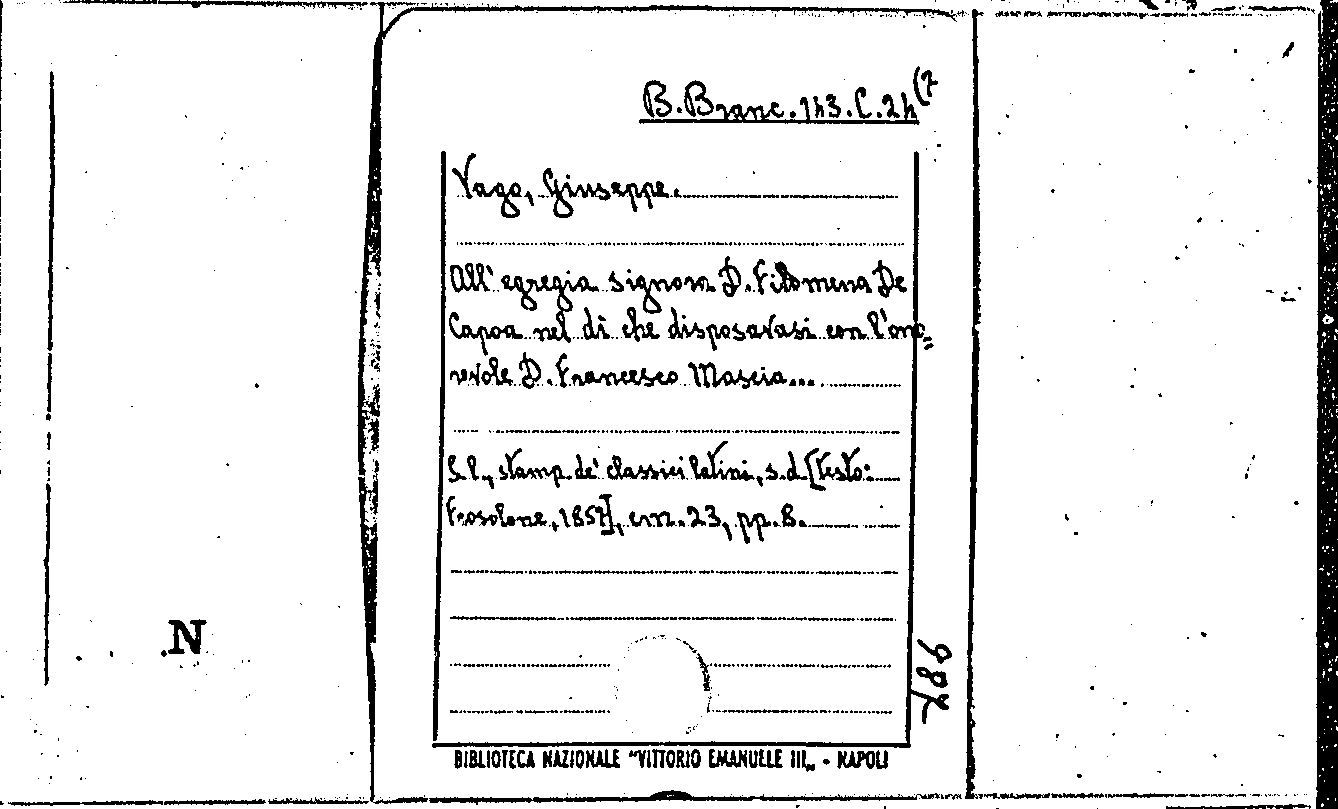 B.Branc.143.C.24(7
Vago, Giuseppe.
All'egregia signora D. Filomena De
Capoa nel dì che disposavasi con l'ono=
revole D. Francesco Mascia...
S.l., stamp. de' classici latini, s.d. [testo:
Frosolone, 1857], cm. 23, pp. 8.
N
BIBLIOTECA NAZIONALE "VITTORIO EMANUELE III„ - NAPOLI